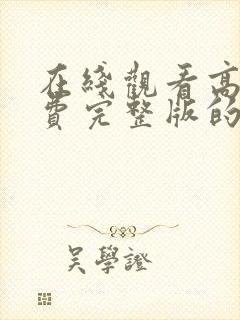 在綫觀看高
費完整版的
吳學證